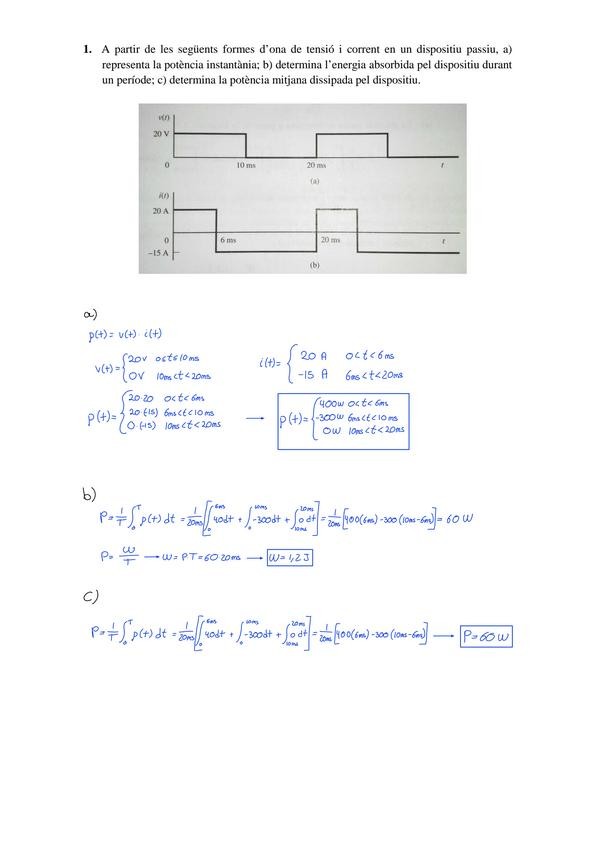 1. A partir de les següents formes d'ona de tensió i corrent en un dispositiu passiu, a)
representa la potència instantània; b) determina l'energia absorbida pel dispositiu durant
un període; c) determina la potència mitjana dissipada pel dispositiu.
v(t)
20 V
0 10 ms 20 ms t
(a)
i(t)
20 A
0 6 ms 20 ms t
−15 A
(b)
a)
p(t) = v(t) · i(t)
v(t) = { 20V 0≤t≤10ms
0V 10ms<t<20ms
i(t) = { 20 A 0<t<6ms
-15 A 6ms<t<20ms
p(t) = { 20·20 0<t<6ms
20·(-15) 6ms<t<10ms
0·(-15) 10ms<t<20ms
→ p(t) = { 400W 0<t<6ms
-300W 6ms<t<10ms
0W 10ms<t<20ms
b)
P = 1/T ∫₀ᵀ p(t) dt = 1/20ms [∫₀^6ms 40dt + ∫₀^10ms -300dt + ∫_10ms^20ms 0 dt] = 1/20ms [400(6ms) -300(10ms-6ms)] = 60 W
P = W/T → W = PT = 60·20ms → W = 1,2 J
c)
P = 1/T ∫₀ᵀ p(t) dt = 1/20ms [∫₀^6ms 40dt + ∫₀^10ms -300dt + ∫_10ms^20ms 0 dt] = 1/20ms [400(6ms) -300(10ms-6ms)] → P = 60 W